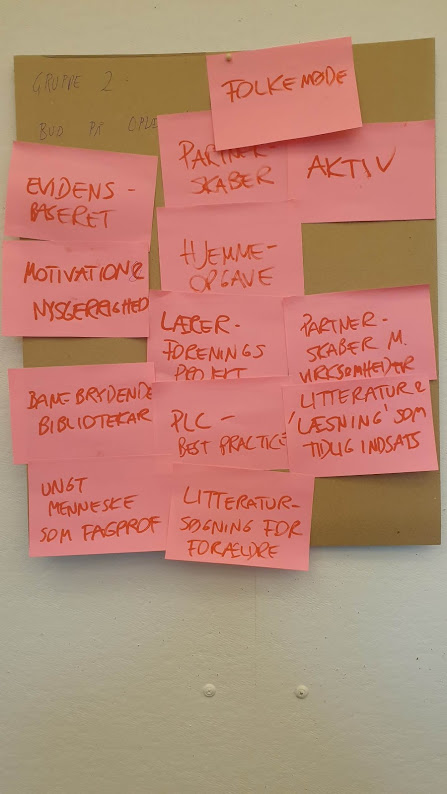 GRUPPE 2:
BUD PÅ
FOLKEMØDE
PARTNER-
SKABER
AKTIV
EVIDENS-
BASERET
HJEMME-
OPGAVE
MOTIVATION &
NYSGERRIGHED
LÆRER-
FORENINGS
PROJEKT
PARTNER-
SKABER M.
VIRKSOMHEDER
BANEBRYDENDE
BIBLIOTEKAR
PLC -
BEST PRACTICE
LITTERATUR &
'LÆSNING' SOM
TIDLIG INDSATS
UNGT
MENNESKE
SOM FAGPROF
LITTERATUR-
SØGNING FOR
FORÆLDRE